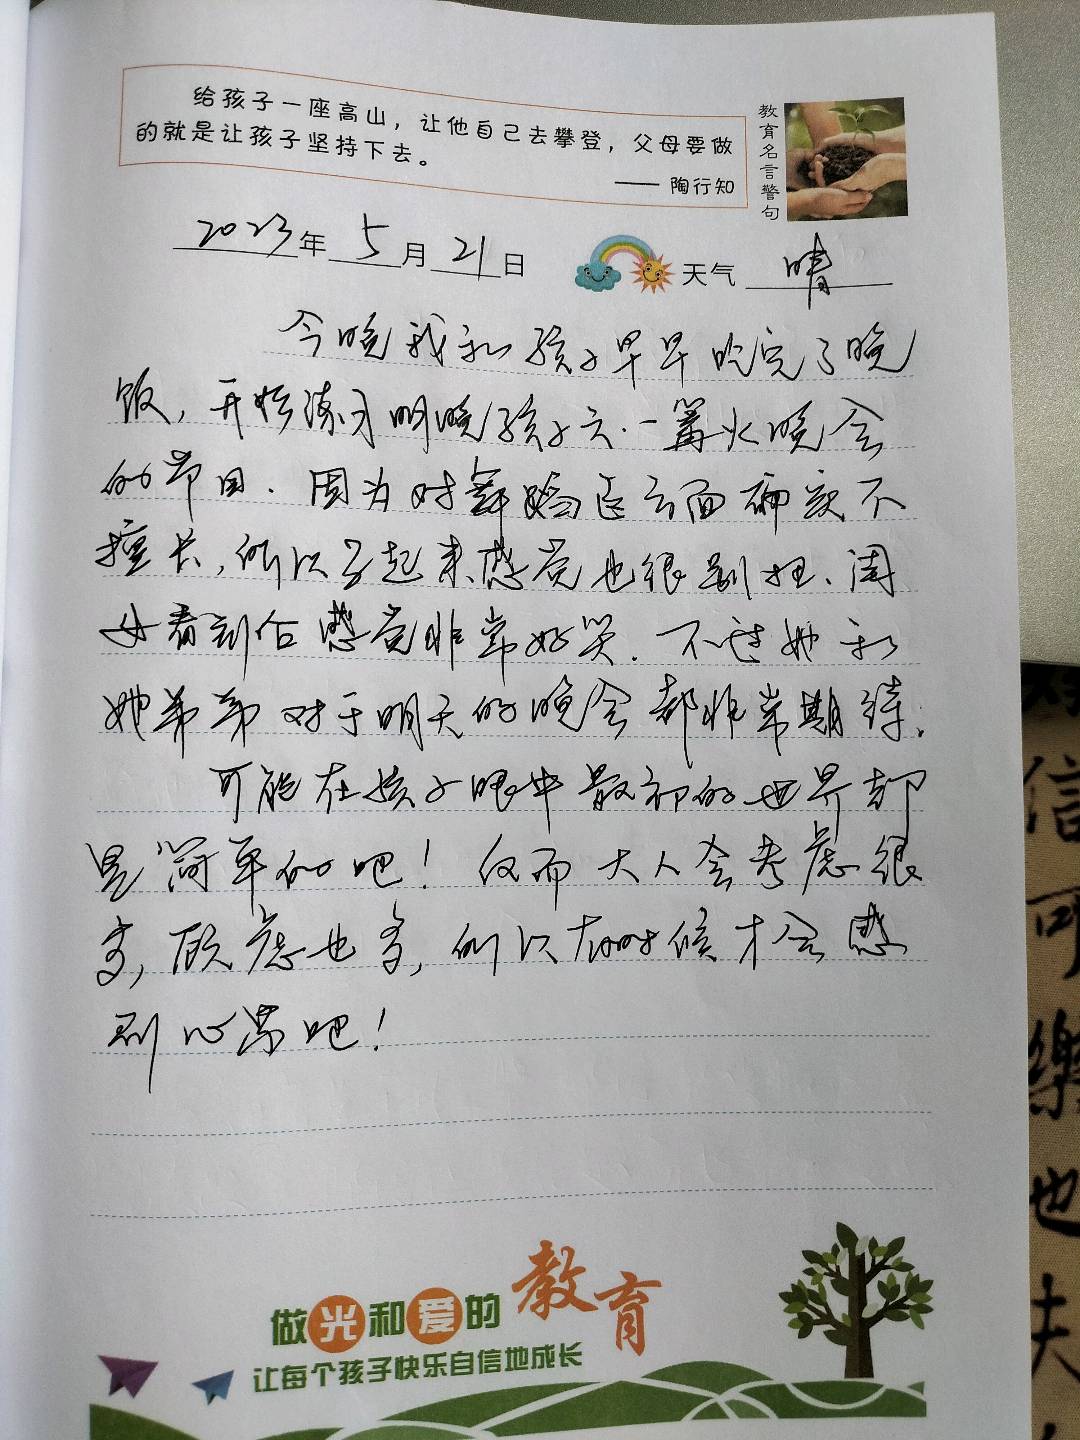 给孩子一座高山，让他自己去攀登，父母要做
的就是让孩子坚持下去。
—— 陶行知
教育名言警句
2023年 5月 21日 天气 晴
今晚我和孩子早早吃完了晚
饭，开始练习明晚孩子六·一篝火晚会
的节目．因为对舞蹈这方面确实不
擅长，所以学起来感觉也很别扭、闺
女看到后感觉非常好笑．不过她和
她弟弟对于明天的晚会都非常期待．
可能在孩子眼中最初的世界都
是简单的吧！反而大人会考虑很
多，顾虑也多，所以有时候才会感
到心累吧！
做光和爱的教育
让每个孩子快乐自信地成长
信
可
樂
也
夫